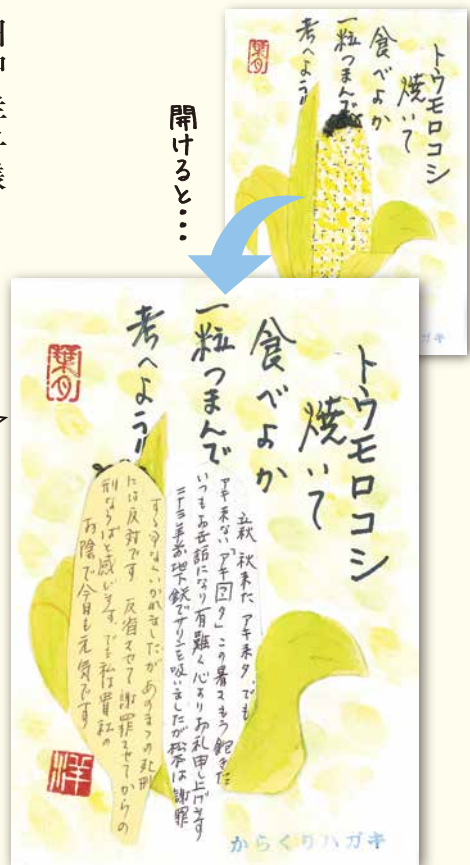 トウモロコシ
焼いて
食べよか
一粒つまんで
考へよう
葉月
ガキ
開けると…
トウモロコシ
焼いて
食べよか
一粒つまんで
考へよう
葉月
立秋 秋来た アキ来タ でも
アキ来ない この暑さもう飽きた
いつもお世話になり有難く心よりお礼申し上げます
地下鉄でサリンを吸いましたが松本は謝罪
する事なくいかれましたが の死刑
には反対です 反省させて謝罪させてからの
刑ならばと感じます でも私は
お陰で今日も元気です
洋
からくりハガキ